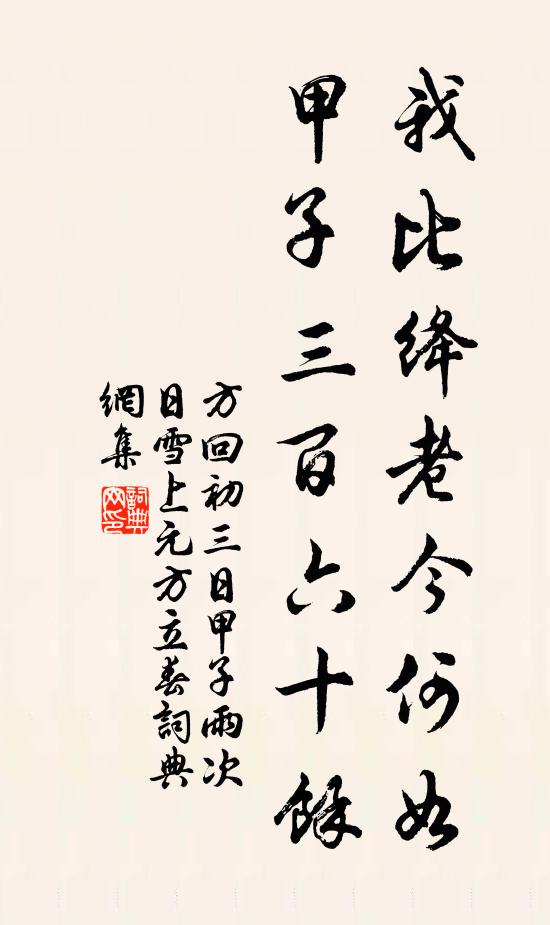 我比絳老今何如
甲子三百六十餘
方回初三日甲子雨次
日雪上元方立春詞典
網集
詞典網印